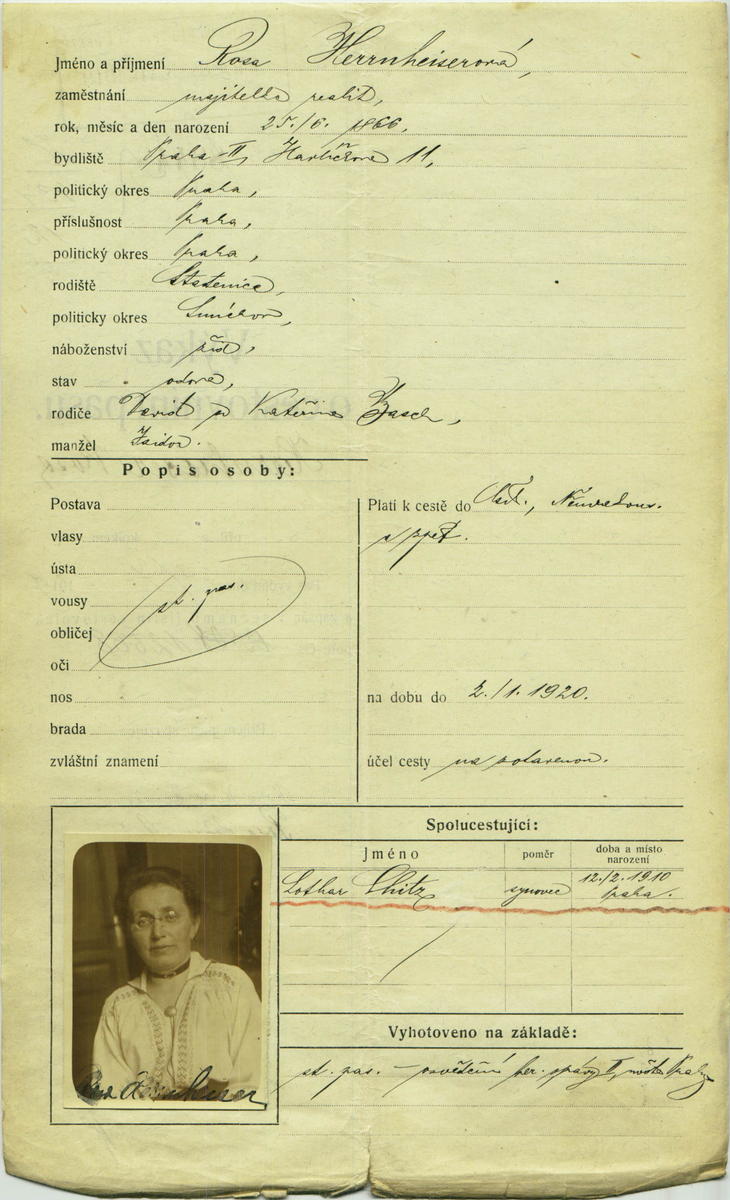 Jméno a příjmení Rosa Herrnheiserová,
zaměstnání majitelka realit,
rok, měsíc a den narození 25./6. 1866,
bydliště Praha-II, Havlíčkova 11,
politický okres Praha,
příslušnost Praha,
politický okres Praha,
rodiště Statenice,
politicky okres Smíchov,
náboženství žid.,
stav vdova,
rodiče David a Kateřina Basch,
manžel Isidor.
Popis osoby:
Postava
vlasy
ústa
vousy st. pas.
obličej
oči
nos
brada
zvláštní znamení
Platí k cestě do
a zpět.
na dobu do 2./1. 1920.
účel cesty na zotavenou.
Spolucestující:
Jméno poměr doba a místo narození
Lothar synovec 12./2. 1910 Praha.
Vyhotoveno na základě:
st. pas. – Prahy
Rosa Herrnheiser